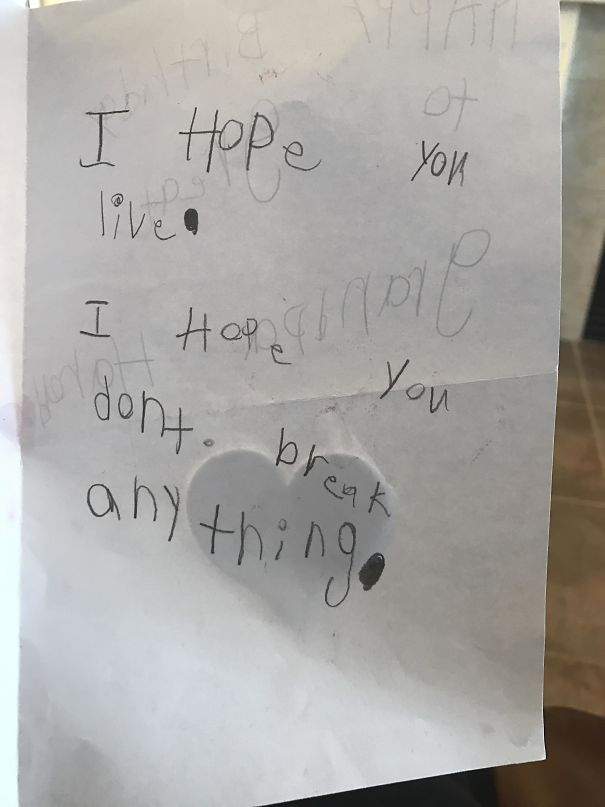 I Hope you
live.
I Hope you
dont. break
any thing.